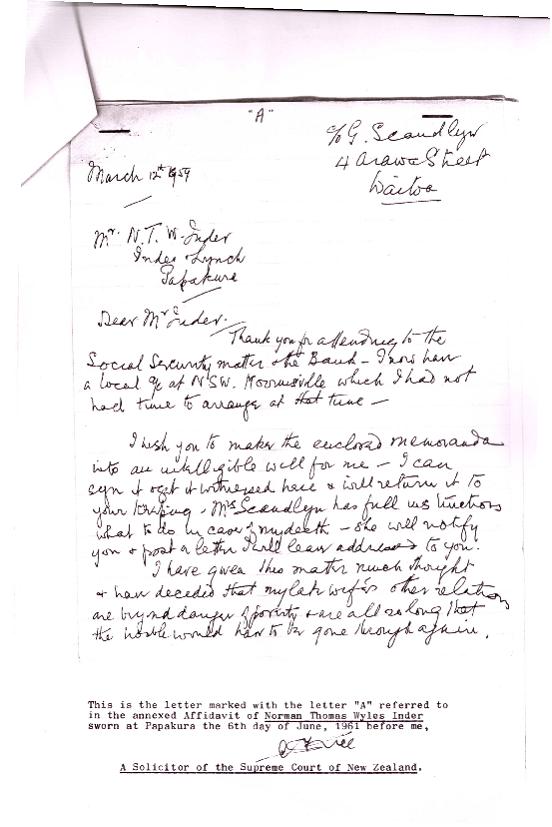 "A"
c/o G. Scandlyn
4 Arawa Street
Waitoa
March 12th 1959
Mr. N. T. W. Inder
Inder & Lynch
Papakura
Dear Mr Inder.
Thank you for attending to the
Social Security matter & the Bank – I now have
a local a/c at NSW. Morrinsville which I had not
had time to arrange at that time –
I wish you to make the enclosed memoranda
into an intelligible will for me – I can
sign it & get it witnessed here & will return it to
your keeping. Mrs Scandlyn has full instructions
what to do in case of my death – she will notify
you & post a letter I will leave addressed to you.
I have given this matter much thought
& have decided that my late wife's other relations
are beyond danger of poverty & are all so long that
the would have to be gone through again.
This is the letter marked with the letter "A" referred to
in the annexed Affidavit of Norman Thomas Wyles Inder
sworn at Papakura the 6th day of June, 1961 before me,
A Solicitor of the Supreme Court of New Zealand.